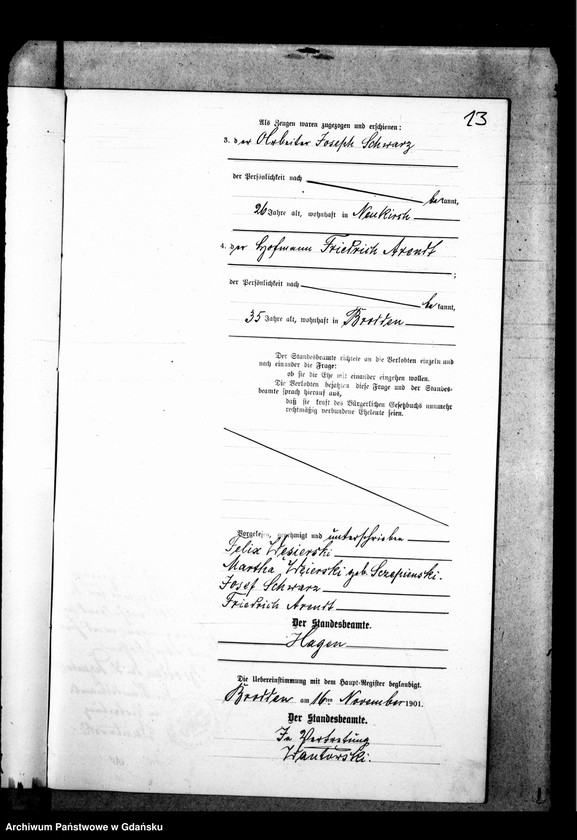 13
Als Zeugen waren zugezogen und erschienen:
3. der Arbeiter Joseph Schwarz
der Persönlichkeit nach
bekannt,
26 Jahre alt, wohnhaft in Neukirch
4. der Hofmann Friedrich Arendt
;
der Persönlichkeit nach
bekannt,
35 Jahre alt, wohnhaft in Brodden
Der Standesbeamte richtete an die Verlobten einzeln und
nach einander die Frage:
ob sie die Ehe mit einander eingehen wollen.
Die Verlobten bejahten diese Frage und der Standes-
beamte sprach hierauf aus,
daß sie kraft des Bürgerlichen Gesetzbuchs nunmehr
rechtmäßig verbundene Eheleute seien.
Vorgelesen, genehmigt und unterschrieben
Felix Wesierski
Martha Wsierski geb. Sczepienski.
Josef Schwarz
Friedrich Arendt
Der Standesbeamte.
Hagen
Die Uebereinstimmung mit dem Haupt-Register beglaubigt.
Brodden am 16ten November 1901.
Der Standesbeamte.
In Vertretung
Wantorski.
Archiwum Państwowe w Gdańsku